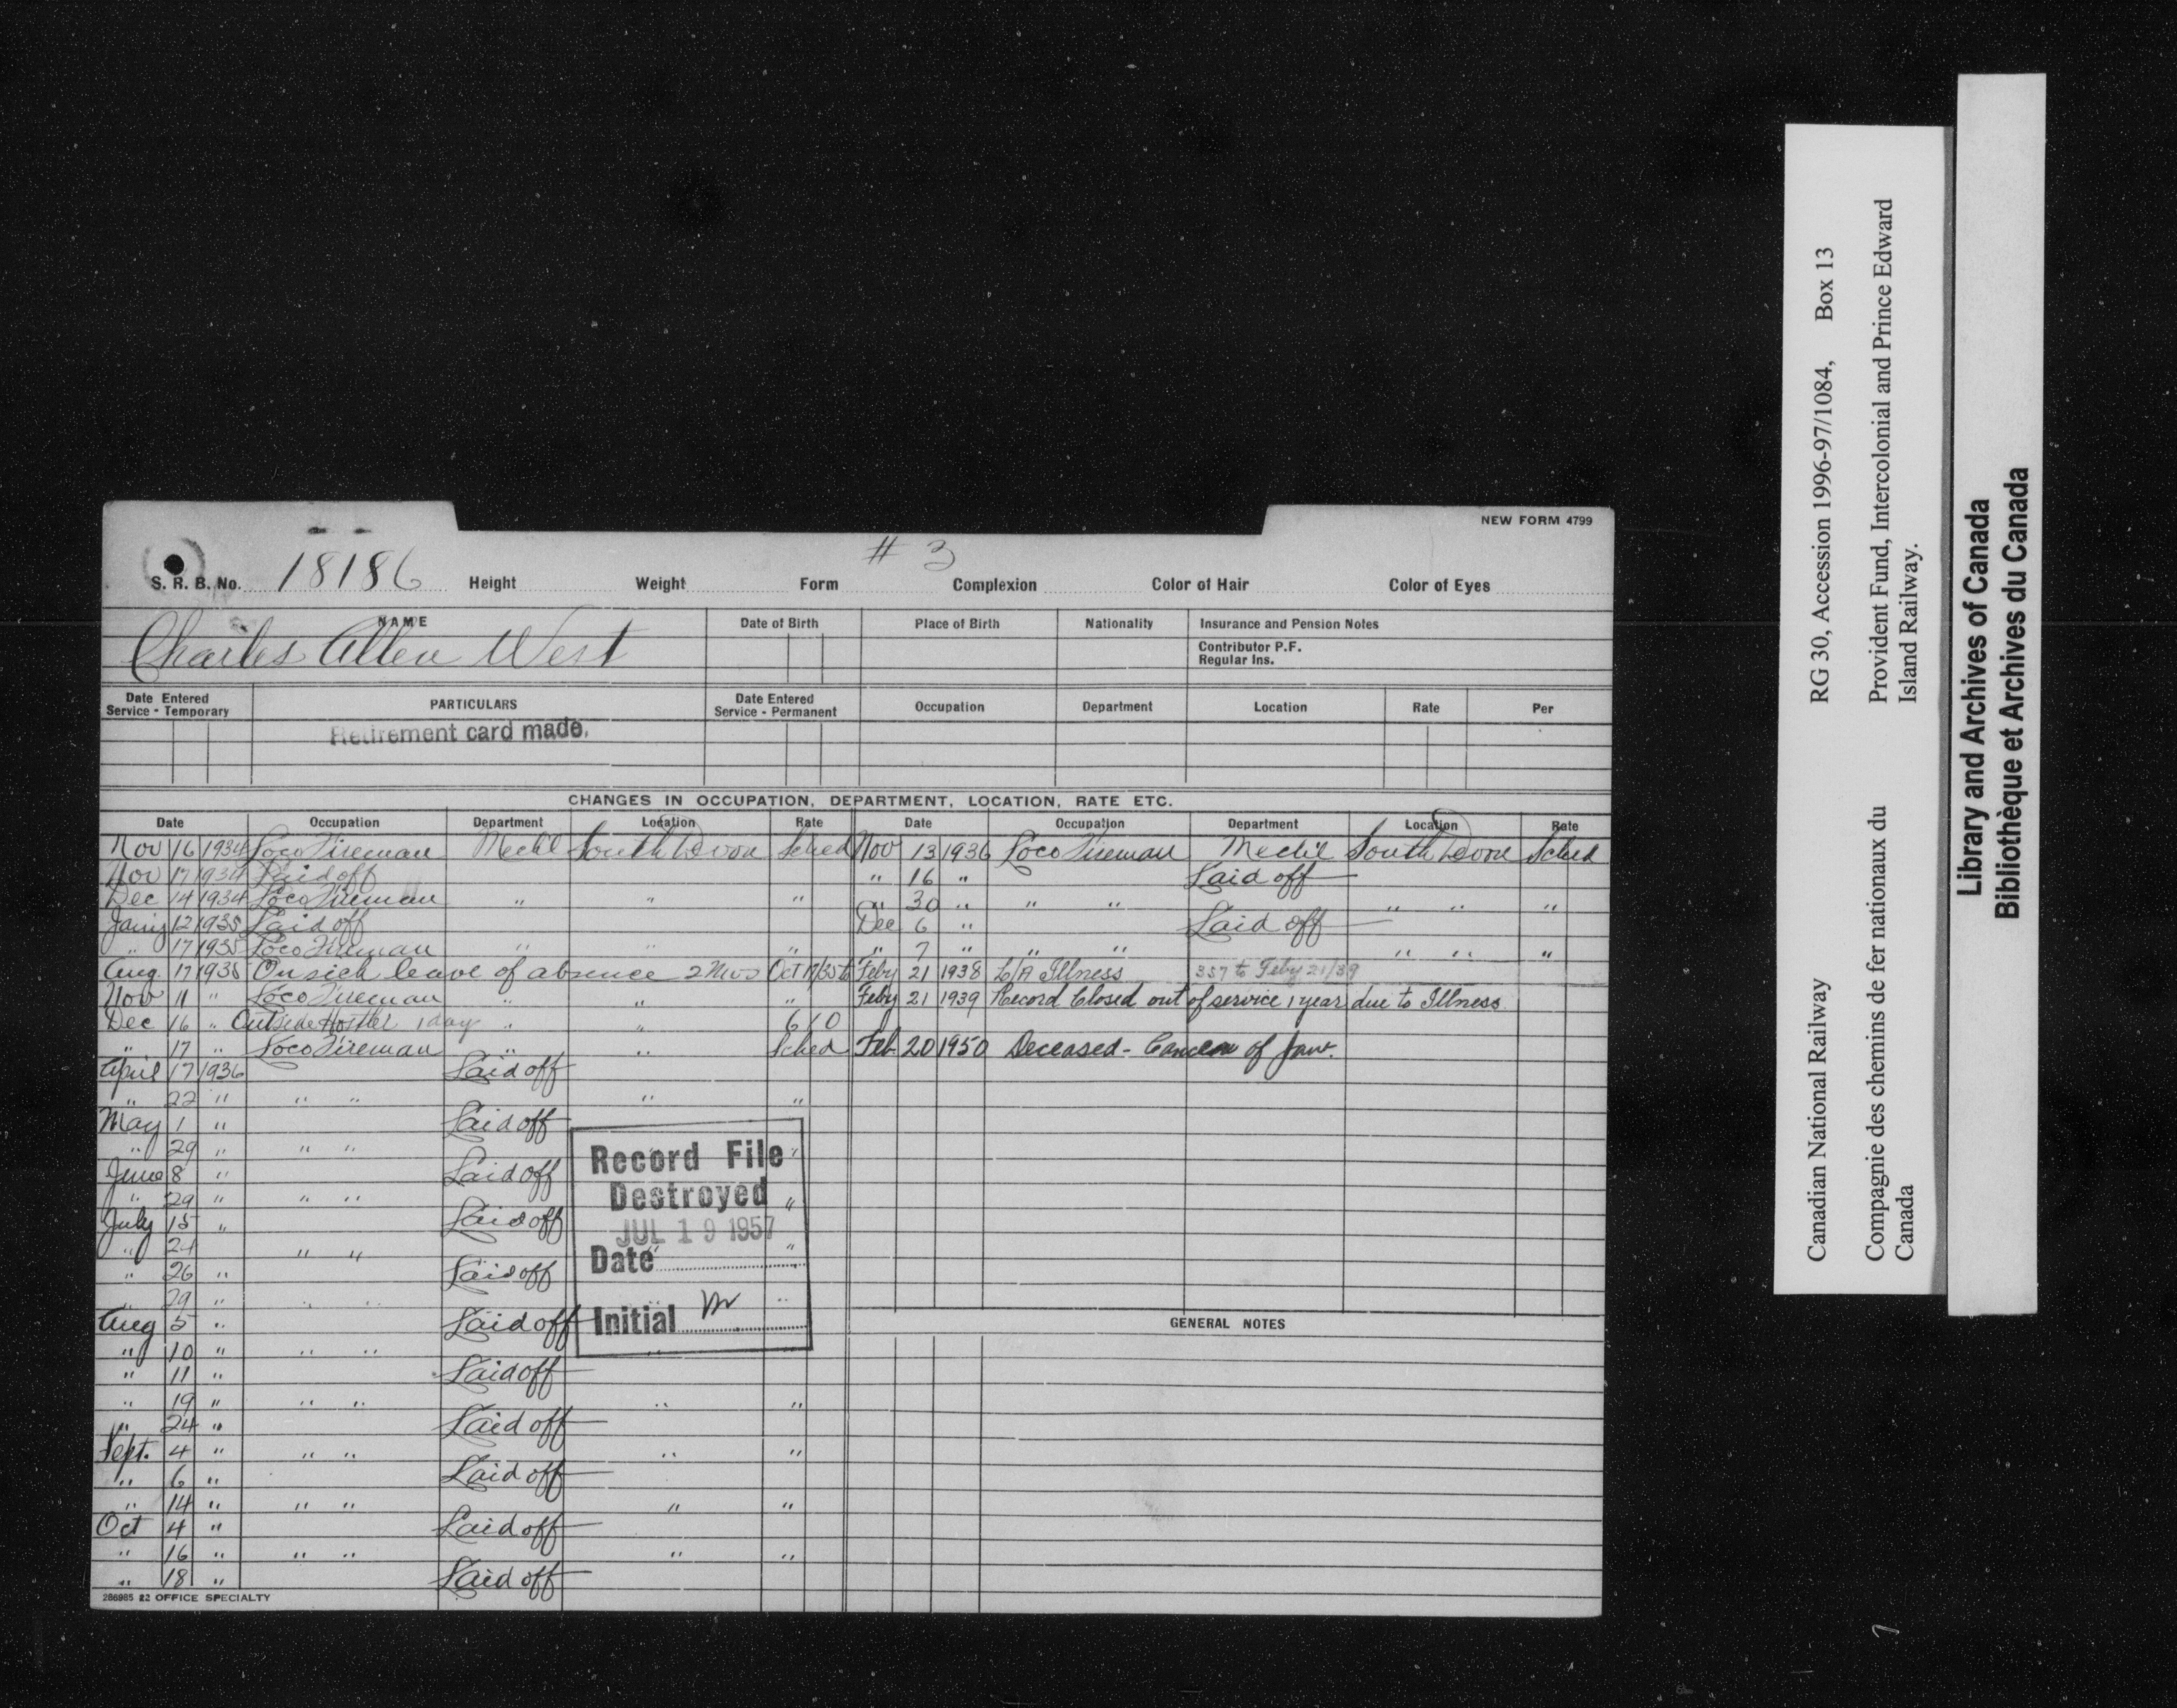 NEW FORM 4799
# 3
S. R. B. No. 18186 Height Weight Form Complexion Color of Hair Color of Eyes
NAME Date of Birth Place of Birth Nationality Insurance and Pension Notes
Charles Allen West
Contributor P.F.
Regular Ins.
Date Entered Service - Temporary PARTICULARS Date Entered Service - Permanent Occupation Department Location Rate Per
Retirement card made.
CHANGES IN OCCUPATION, DEPARTMENT, LOCATION, RATE ETC.
Date Occupation Department Location Rate
Nov 16 1934 Loco Fireman Mechl South Devon Sched
Nov 17 1934 Laid off
Dec 14 1934 Loco Fireman " " "
Jany 12 1935 Laid off
" 17 1935 Loco Fireman " " "
Aug. 17 1935 On sick leave of absence 2 Mos Oct 17/35
Nov 11 " Loco Fireman " " "
Dec 16 " Outside Hostler 1 day " " 6 10
" 17 " Loco Fireman " " Sched
April 17 1936 Laid off
" 22 " " " " "
May 1 " Laid off
" 29 " " " "
June 8 " Laid off
" 29 " " " "
July 15 " Laid off
" 24 " " " "
" 26 " Laid off
" 29 " " " "
Aug 5 " Laid off
" 10 " " "
" 11 " Laid off
" 19 " " " " "
" 24 " Laid off
Sept. 4 " " " " "
" 6 " Laid off
" 14 " " " " "
Oct 4 " Laid off
" 16 " " " " "
" 18 " Laid off
286985 22 OFFICE SPECIALTY
Record File
Destroyed
JUL 19 1957
Date
Initial
Date Occupation Department Location Rate
Nov 13 1936 Loco Fireman Mechl South Devon Sched
" 16 " Laid off
" 30 " " " " " "
Dec 6 " Laid off
" 7 " " " " " "
Feby 21 1938 L/A Illness 357 to Feby 21/39
Feby 21 1939 Record Closed out of service 1 year due to Illness
Feb 20 1950 Deceased - Cancer of Jaw.
GENERAL NOTES
Canadian National Railway RG 30, Accession 1996-97/1084, Box 13
Compagnie des chemins de fer nationaux du Canada
Provident Fund, Intercolonial and Prince Edward Island Railway.
Library and Archives of Canada
Bibliothèque et Archives du Canada